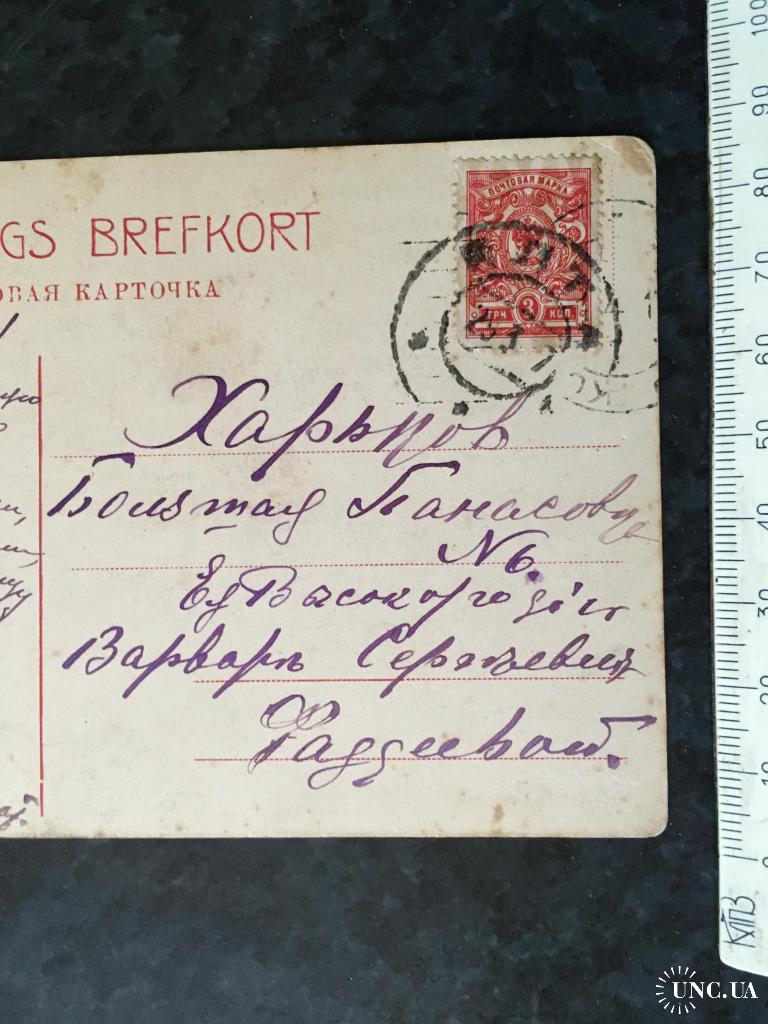 GS BREFKORT
ОВАЯ КАРТОЧКА
ПОЧТОВАЯ МАРКА
ТРИ 3 КОП.
Харьков
Большая Панасовс
№ 6.
Ея Высокородiю
Варварѣ Сергѣевнѣ
Фаддеевой.
100
90
80
70
60
50
40
30
20
10
0
UNC.UA